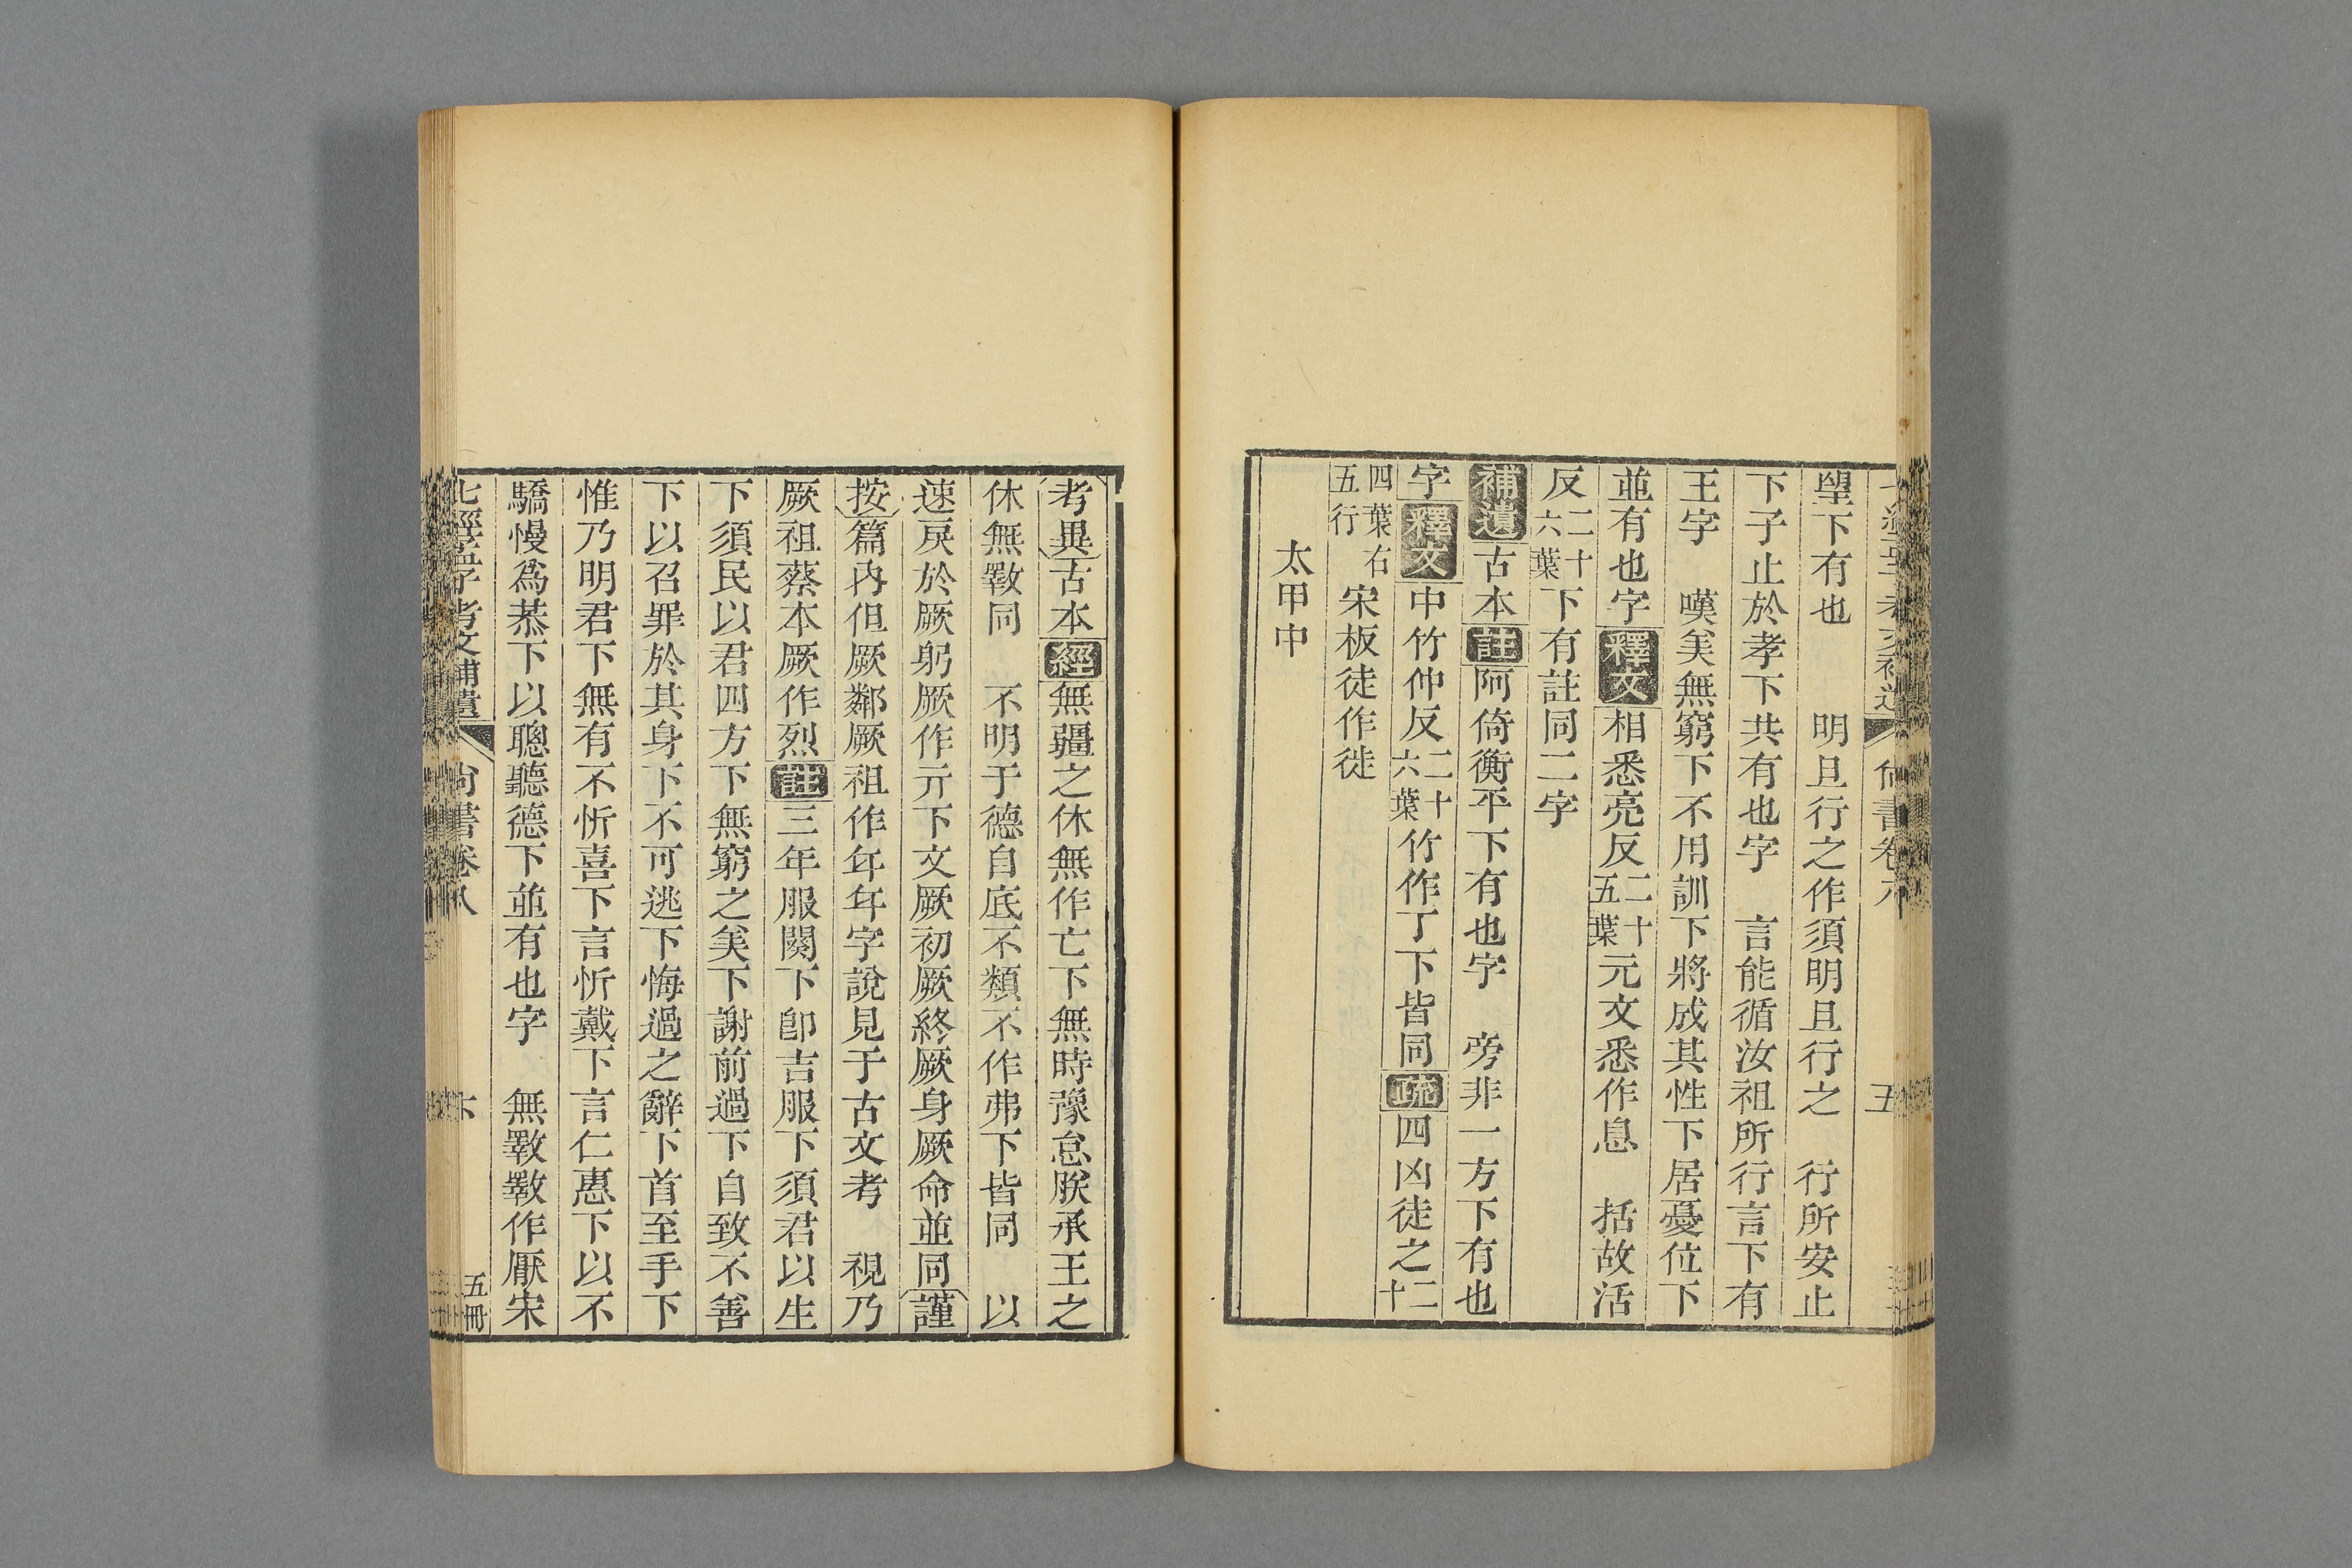 望下有也　　明且行之作須明且行之　行所安止
下子止於孝下共有也字　言能循汝祖所行言下有
王字　嘆美無窮下不用訓下將成其性下居憂位下
並有也字釋文相悉亮反二十五葉元文悉作息　括故活
反二十六葉下有註同二字
補遺古本註阿倚衡平下有也字　旁非一方下有也
字釋文中竹仲反二十六葉竹作丁下皆同疏四凶徒之二十
四葉右五行宋板徒作徙
太甲中
考異古本經無疆之休無作亡下無時豫怠朕承王之
休無斁同　不明于德自底不類不作弗下皆同　以
速戾於厥躬厥作亓下文厥初厥終厥身厥命並同謹
按篇內但厥鄰厥祖作年年字說見于古文考　視乃
厥祖蔡本厥作烈註三年服闋下卽吉服下須君以生
下須民以君四方下無窮之美下謝前過下自致不善
下以召罪於其身下不可逃下悔過之辭下首至手下
惟乃明君下無有不忻喜下言忻戴下言仁惠下以不
驕慢爲恭下以聰聽德下並有也字　無斁斁作厭宋
七經孟子考文補遺　尚書卷八　六　五冊